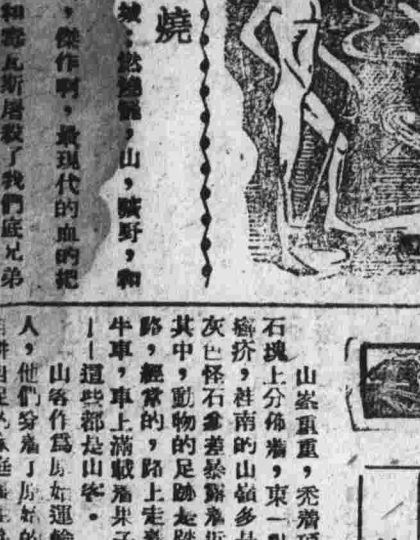 燒
城：燃燒罷，山，曠野，和
，傑作啊，最現代的血的把
和毒瓦斯屠殺了我們底兄弟
山巒重重，禿着頂
石塊上分佈着，東一
癬疥，桂南的山嶺多
灰色怪石參差暴露着
其中，動物的足跡走踏
路，經常的，路上走着
牛車，車上滿載着果子
——這些都是山客。
山客作爲原始運輸
人，他們穿着了原始的